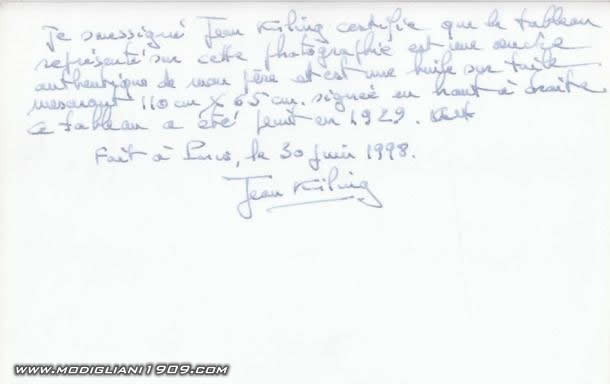 Je soussigné Jean Kisling certifie que le tableau
représenté sur cette photographie est une œuvre
authentique de mon père et est une huile sur toile
mesurant 110 cm X 65 cm. signée en haut à droite
Ce tableau a été peint en 1929.
Fait à Paris, le 30 juin 1998.
Jean Kisling
WWW.MODIGLIANI1909.COM